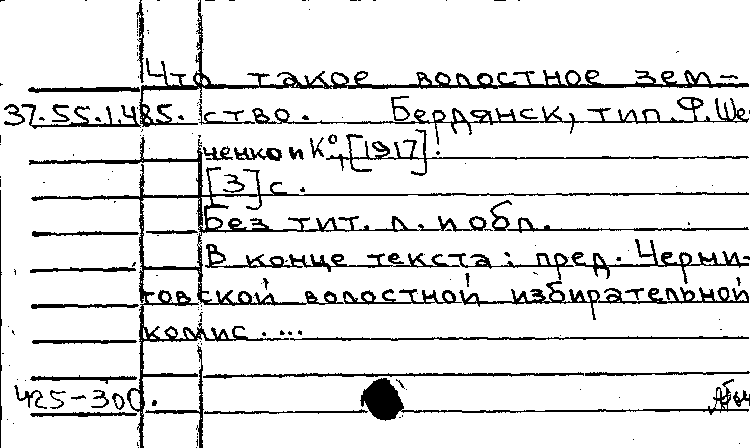 Что такое волостное зем-
37.55.1.485. ство. Бердянск, тип. Ф. Ше
ченко и К°, [1917].
[3] с.
Без тит. л. и обл.
В конце текста: пред. Черни-
говской волостной избирательной
комис. ...
425-300.